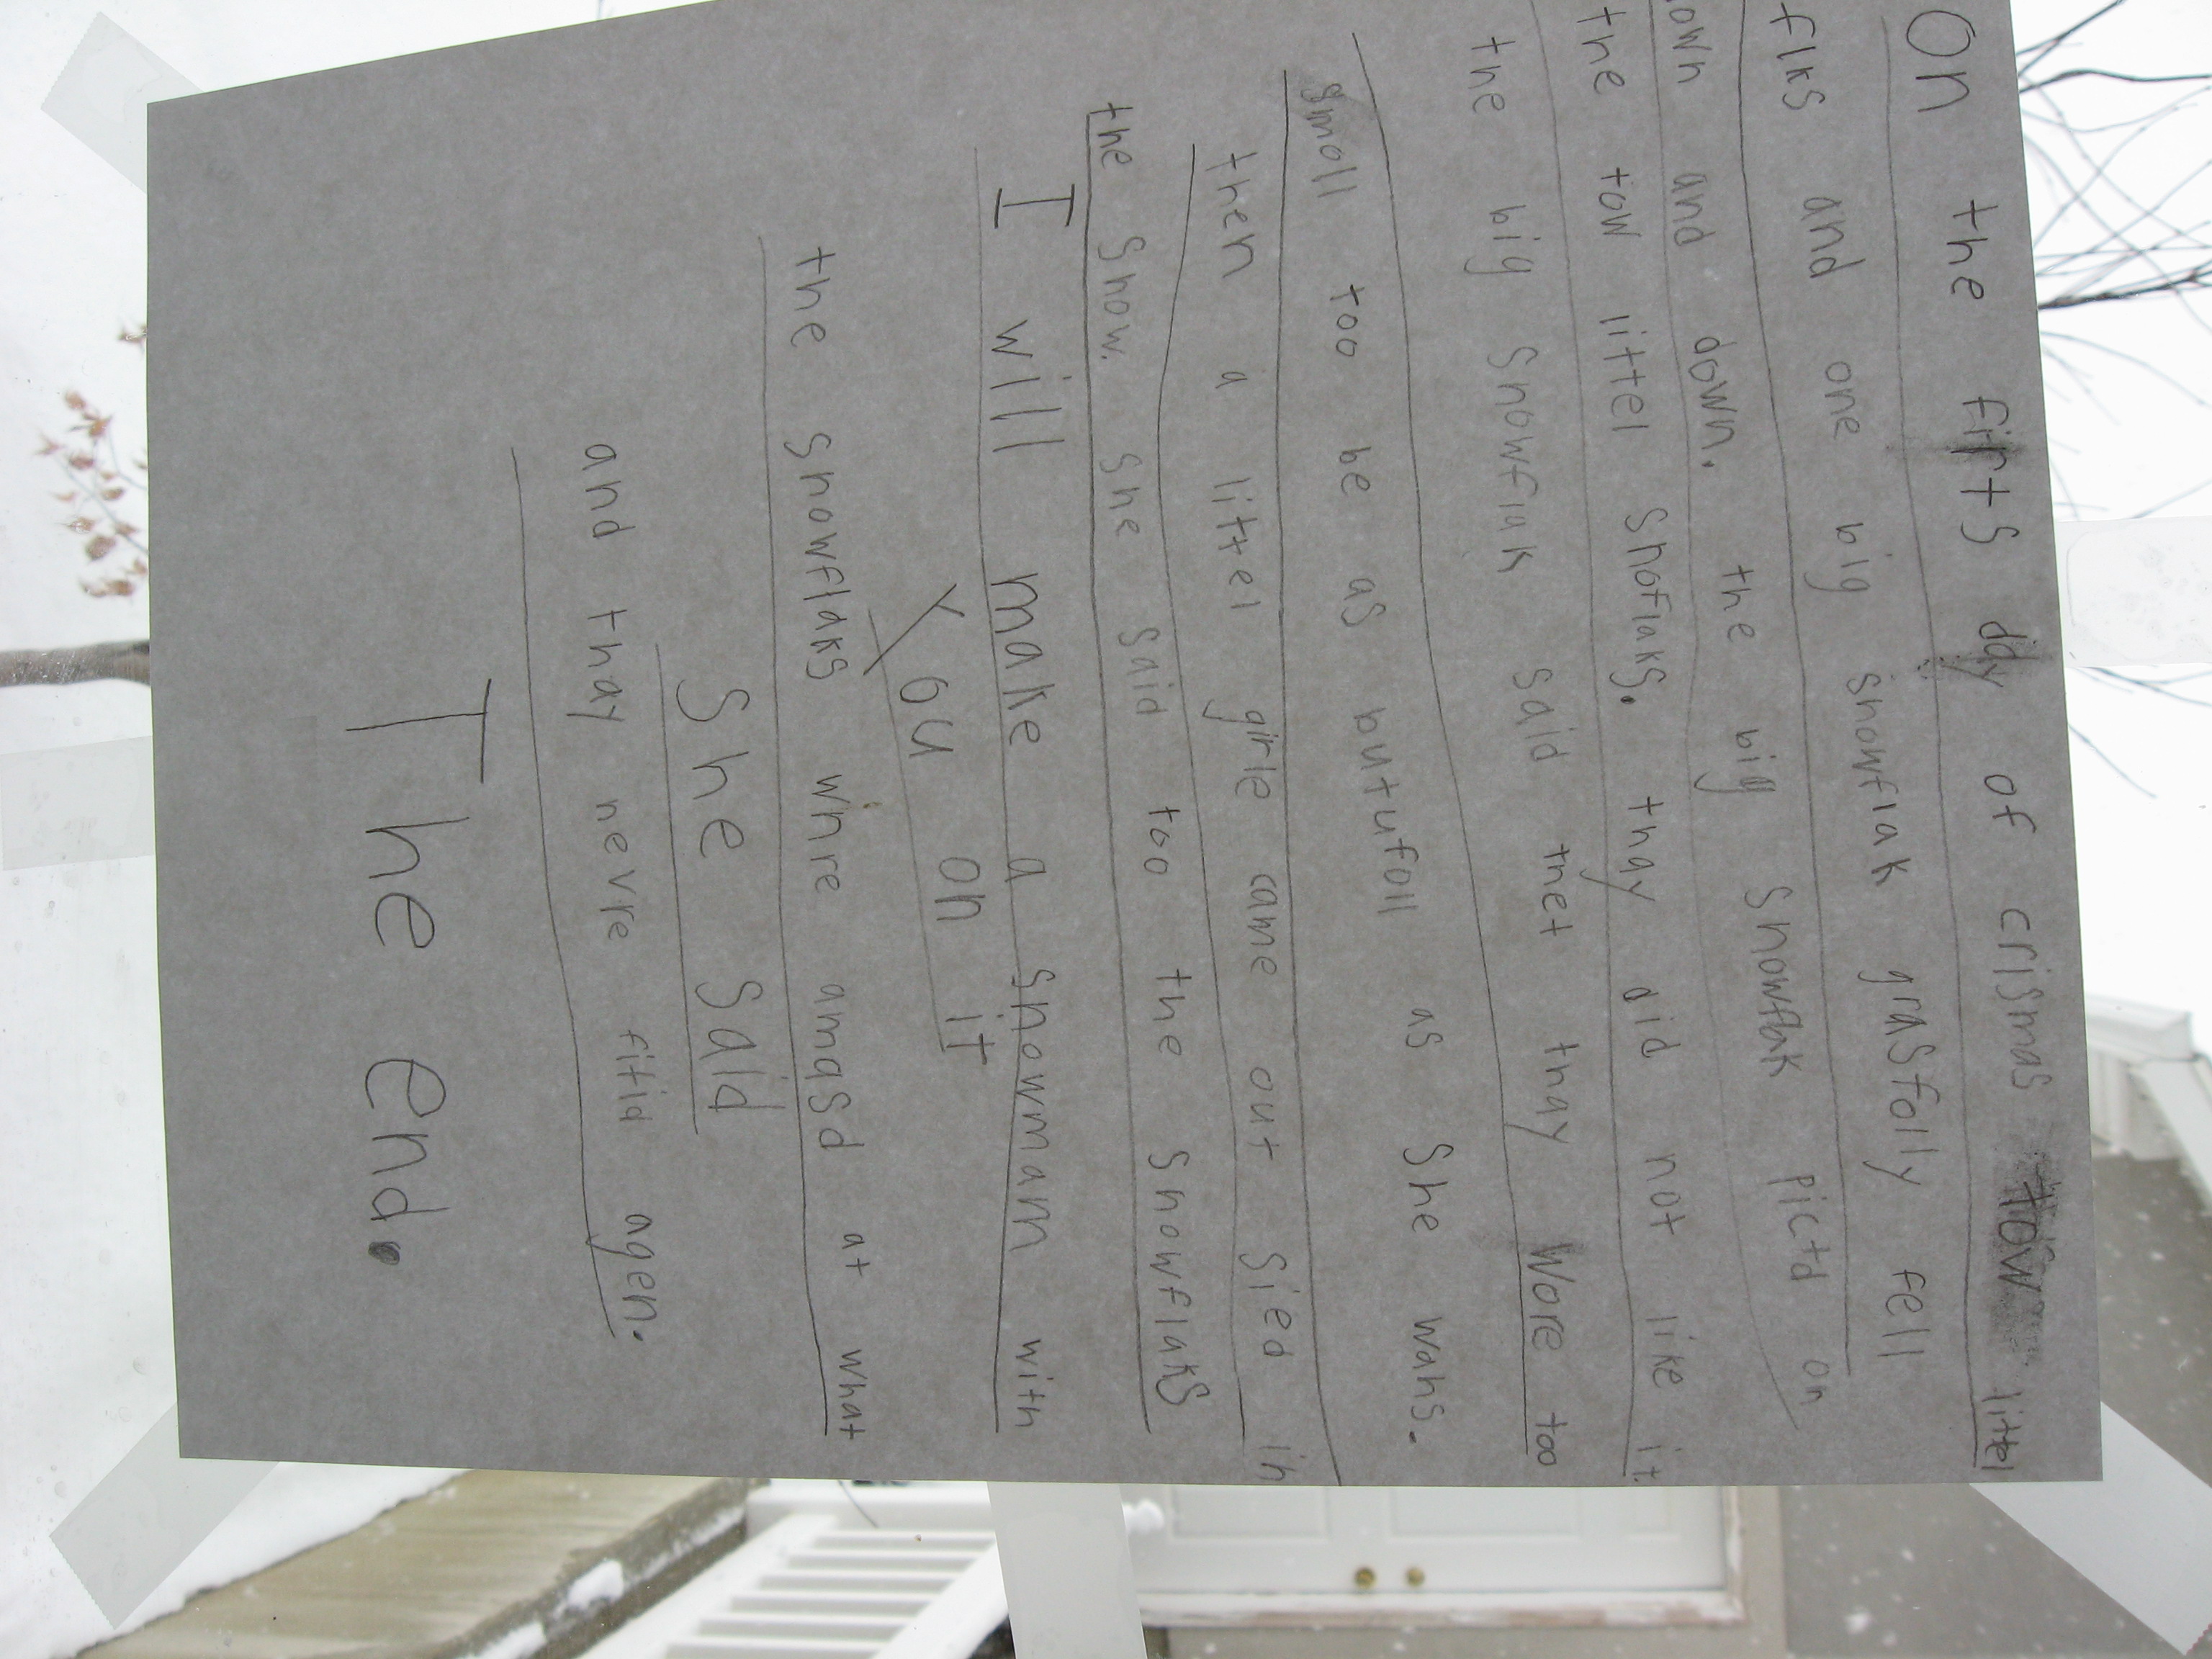 On the firts day of crismas tow littel
flks and one big snowflak grasfolly fell
own and and down. the big Snowflak pictd on
the tow littel Snoflaks. thay did not like it.
the big Snowflak said thet thay Wore too
smoll too be as butufoll as She wahs.
then a littel girle came out Sied in
the Snow. She said too the snowflaks
I will make a snowmam with
You on it
the snowflaks whre amasd at what
She Said
and thay nevre fitid agen.
The end.